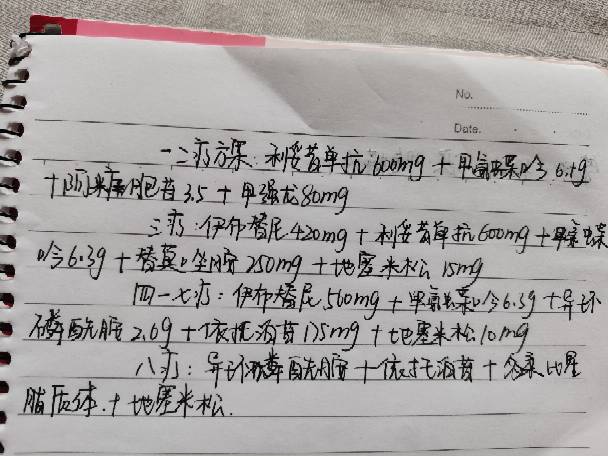 No.
Date.
一二疗方案:利妥昔单抗600mg+甲氨蝶呤6.1g
+阿糖胞苷3.5+甲强龙80mg
三疗:伊布替尼420mg+利妥昔单抗600mg+甲氨蝶
呤6.3g+替莫唑胺250mg+地塞米松15mg
四一七疗:伊布替尼560mg+甲氨蝶呤6.3g+异环
磷酰胺2.6g+依托泊苷175mg+地塞米松10mg
八疗:异环磷酰胺+依托泊苷+多柔比星
脂质体.+地塞米松.